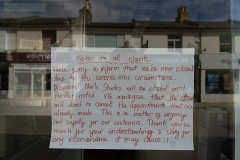 Notice to all clients
sorry to inform that we're now closed
due to the coronavirus circumstance.
Diamond Nails Studio will be closed until
further notice. We apologise that the
will need to cancel the appointments that
already made. This is a matter of urgency
and safety for our customers. Thank you so
much for your understanding & sorry for
any inconvenience it may cause